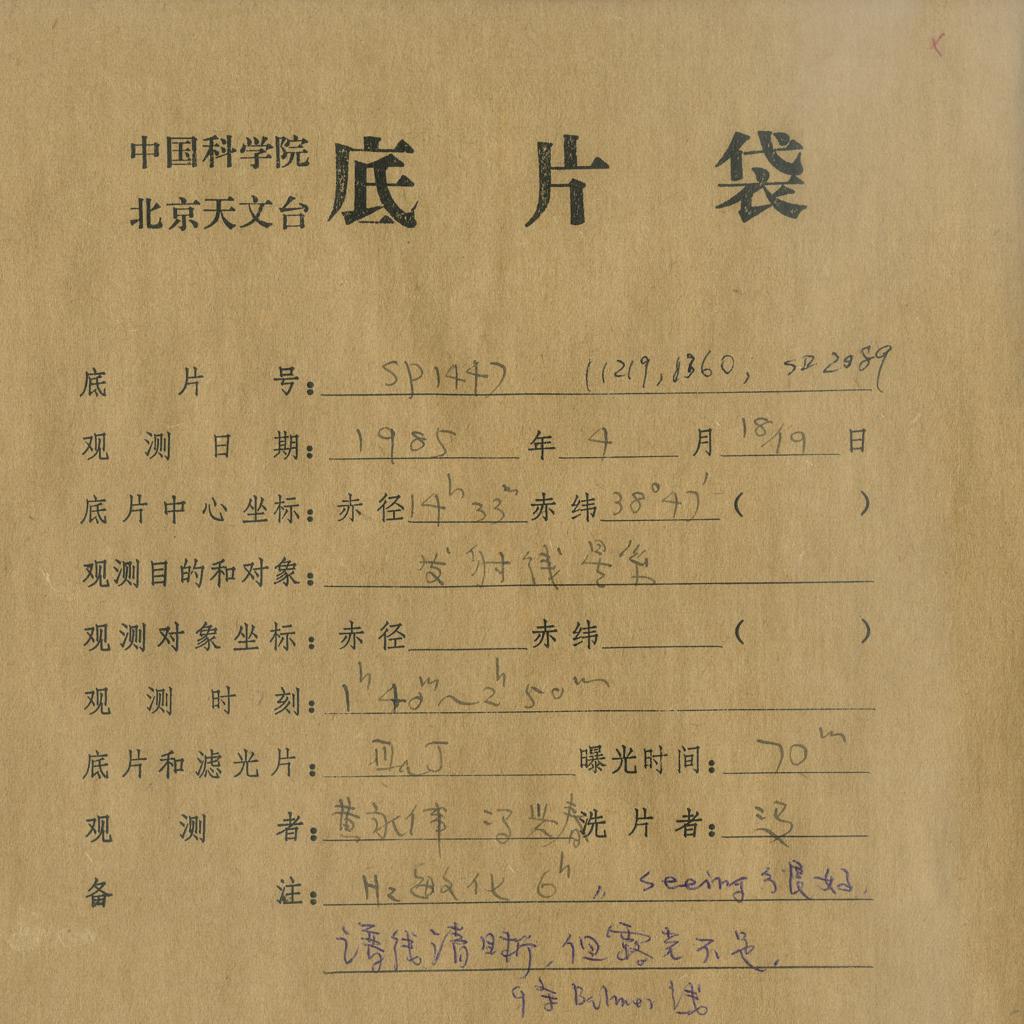 中国科学院
北京天文台
底片袋
底片号: SP1447 (1219, 1360, SP2989
观测日期: 1985 年 4 月 18/19 日
底片中心坐标: 赤径 14h 33m 赤纬 38°47′ ( )
观测目的和对象: 发射线星系
观测对象坐标: 赤径 赤纬 ( )
观测时刻: 1h 40m~2h 50m
底片和滤光片: IIaJ 曝光时间: 70m
观测者: 黄永伟 冯兴春 洗片者: 冯
备注: H2敏化 6h, seeing 很好,
谱线清晰, 但露光不足,
9条Balmer线